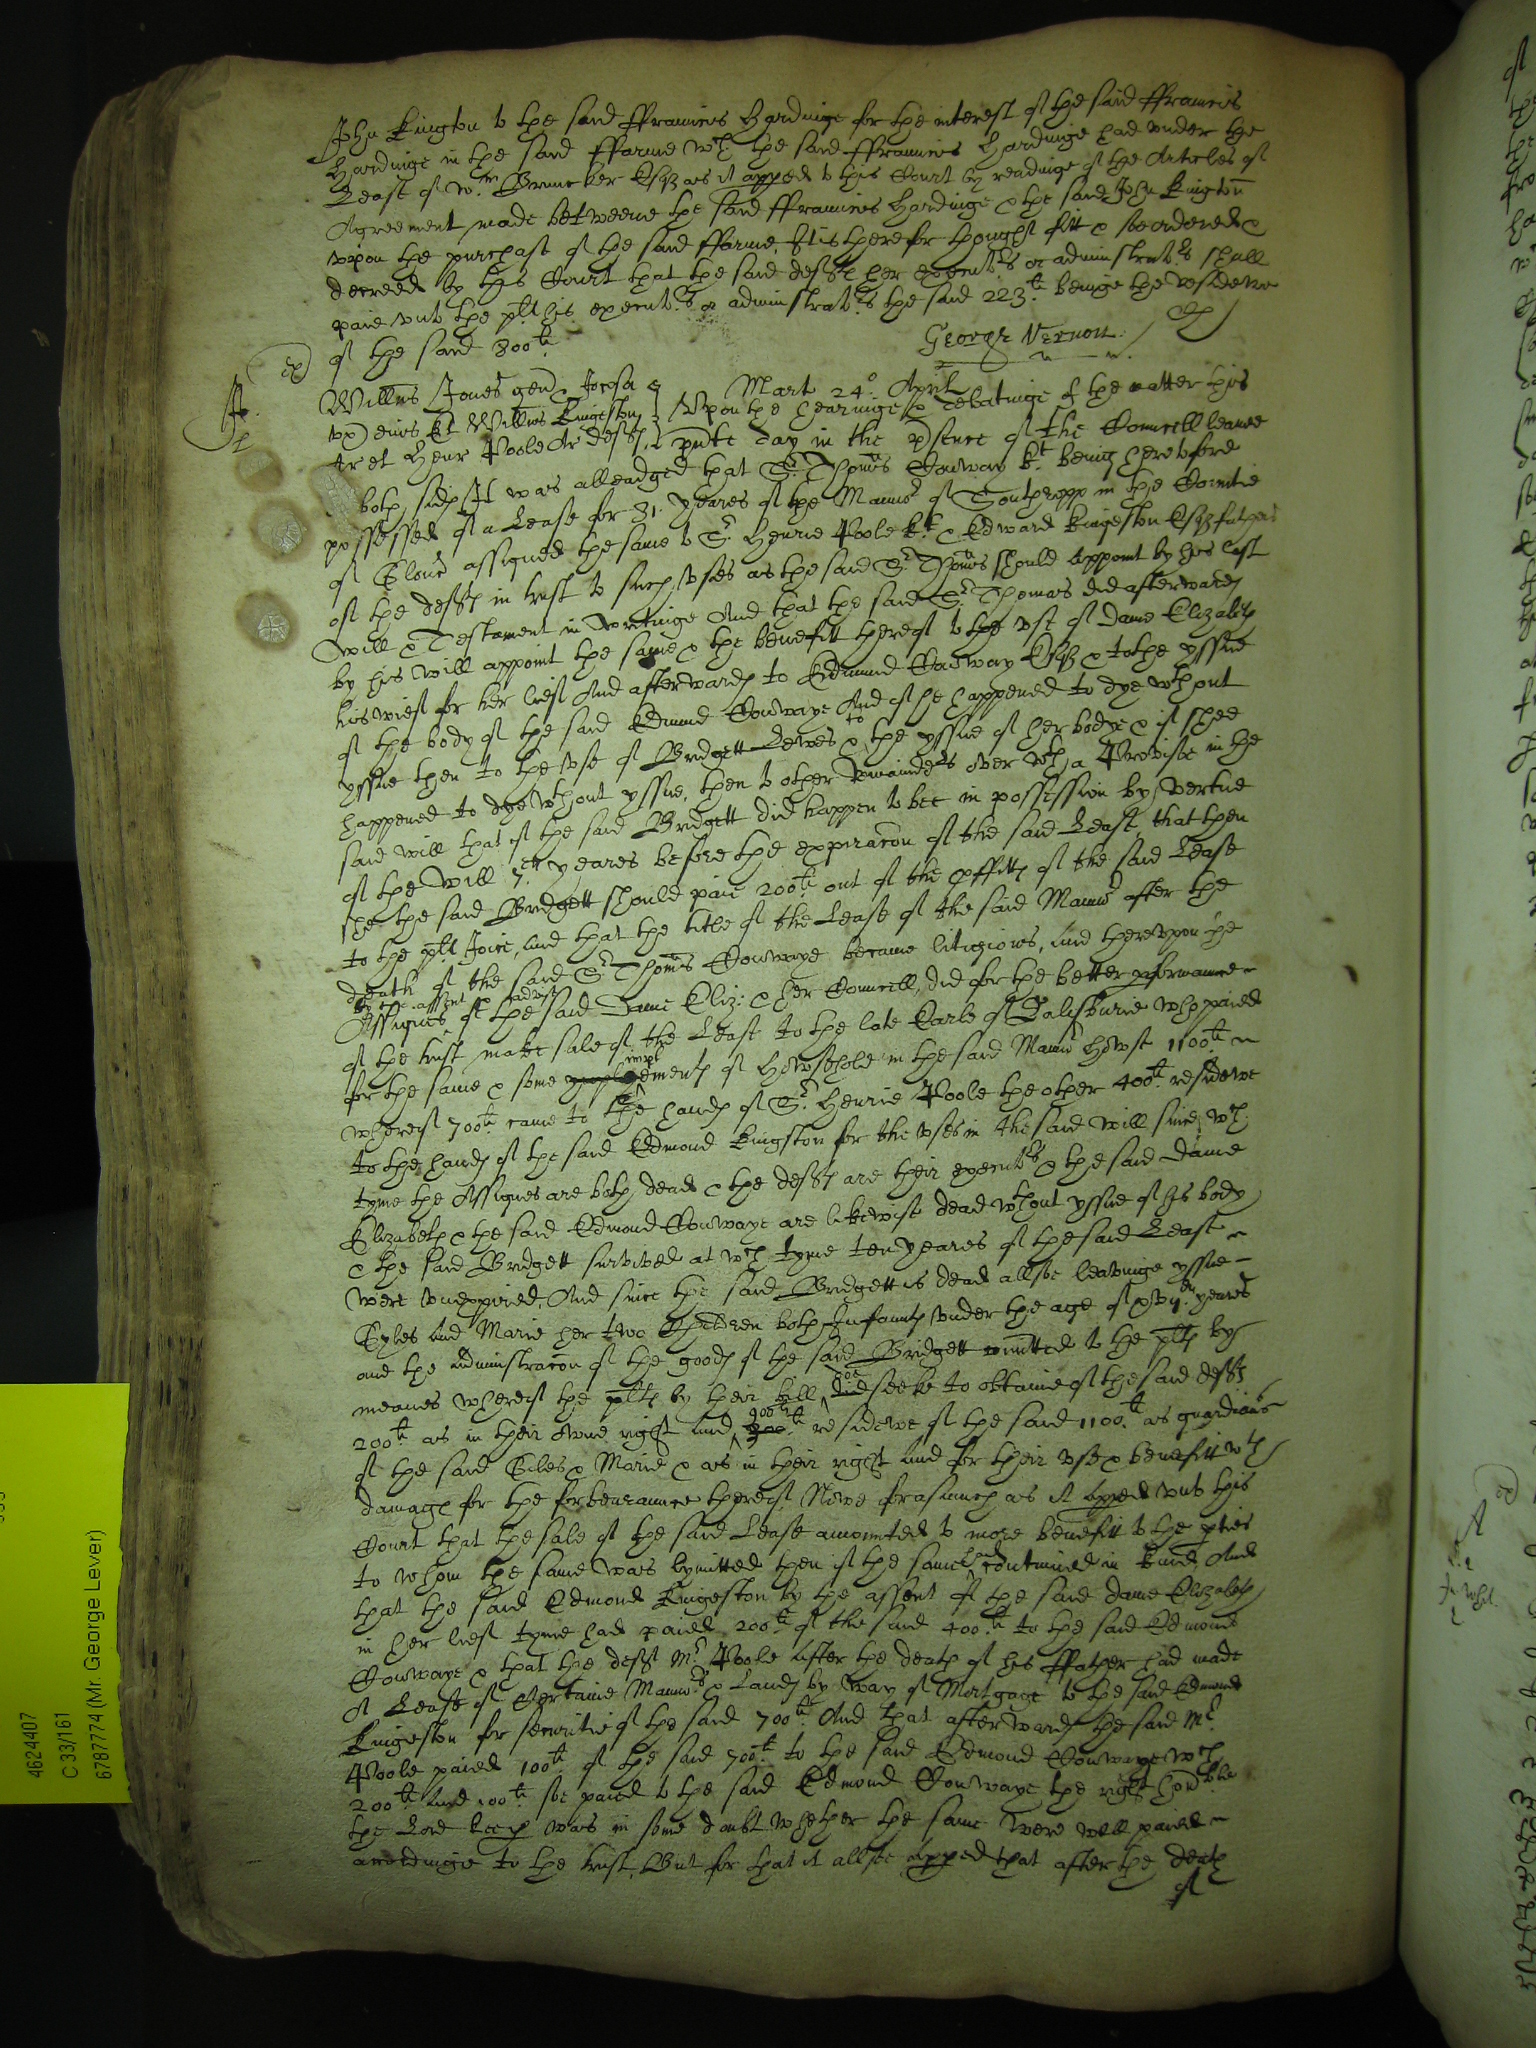 John Kington to the said Ffrauncis Hardinge for the interest of the said Ffrauncis
Hardinge in the said Ffarme wch the said Ffrauncis Hardinge had vnder the
Lease of Wm Bruncker Esqr as it appeth to this Court by readinge of the Articles of
Agreement made betweene the said Ffrauncis Hardinge & the said John Kington
vpon the purchase of the said Ffarme, It is therefor thought fitt & soe ordered &
decreed by this Court that the said defft her executrs or administratrs shall
paie vnto the plt his executrs or administratrs the said 223li beinge the residewe
of the said 800li.
George Vernon.
Willms Jones gen & Jocosa
vx eius Willms Kingeston
Ar et Henr Poole Ar defftes
Mart 24o April
Vpon the hearinge & debatinge of the matter this
pnte day in the psence of the Councell learned
both sides It was alleadged that Sr Thomas Conway kt being heretofore
possessed of a Lease for 31 yeares of the Mannor of Southropp in the Countie
of Glouc assigned the same to Sr Henrie Poole kt & Edward Kingeston Esqr
of the defftes in trust to such vses as the said Sr Thomas should appoint by his last
Will & Testament in writinge And that the said Sr Thomas did afterwardes
by his will appoint the same & the benefitt thereof to the vse of Dame Elizabeth
his wief for her lief And afterwardes to Edmund Conway Esqr & to the yssue
of the body of the said Edmund Conwaye And if he happened to dye wthout
yssue then to the vse of Bridgett Lewes & to the yssue of her bodye & if shee
happened to dye wthout yssue, then to other remainders over wth a Proviso in the
said will that if the said Bridgett did happen to bee in possession by vertue
of the will 7en yeares before the expiracon of the said Lease, that then
she the said Bridgett should paie 200li out of the pffittes of the said Lease
to the plt Joice, And that the title of the Lease of the said Mannor after the
death of the said Sr Thomas Conwaye became litigious, And therevpon the
by the assent advise
Assignes of the said Dame Eliz: & her Councell, did for the better pformance
of the trust make sale of the Lease to the late Earle of Salisburie who paied
impl
for the same & some ementes of howsehole in the said Mannor howse 1100li
whereof 700li came to the handes of Sr Henrie Poole the other 400li residewe
to the handes of the said Edmond Kingston for the vses in the said will since wch
tyme the Assignes are both dead & the defftes are their executrs & the said Dame
Elizabeth & the said Edmond Conwaye are likewise dead wthout yssue of his body
& the said Bridgett survived at wch tyme ten yeares of the said Lease
were vnexpired, And since the said Bridgett is dead allsoe leavinge yssue
Gyles And Marie her two Children both Infantes vnder the age of yeares
and the Administracon of the goodes of the said Bridgett comitted to the pltes by
meanes whereof the pltes by their bill doe did seeke to obtaine of the said defftes
200li as in their owne right And 900li residewe of the said 1100li as guardians
of the said Giles & Marie & as in their right And for their vse & benefitt wth
damages for the forbearaunce thereof, Nowe forasmuch as it apped vnto this
Court that the sale of the said Lease amounted to more benefitt to the pties
to whom the same was lymitted then if the same had continued in kind And
that the said Edmond Kingeston by the assent of the said Dame Elizabeth
in her lief tyme had paied 200li of the said 400li to the said Edmond
Conwaye & that the defft Mr Poole after the death of his Ffather had made
A Lease of Certaine Mannors & Landes by way of Mortgage to the said Edmond
Kingeston for securitie of the said 700li. And that afterwardes the said Mr
Poole paied 100li of the said 700li to the said Edmond Conwaye wch
200li And 100li soe paied to the said Edmond Conwaye the right honoble
the Lord keep was in some doubt whether the same were well paied
accordinge to the trust, But for that it allsoe apped that after the death
of
4624407
C 33/161
67877774 (Mr. George Lever)